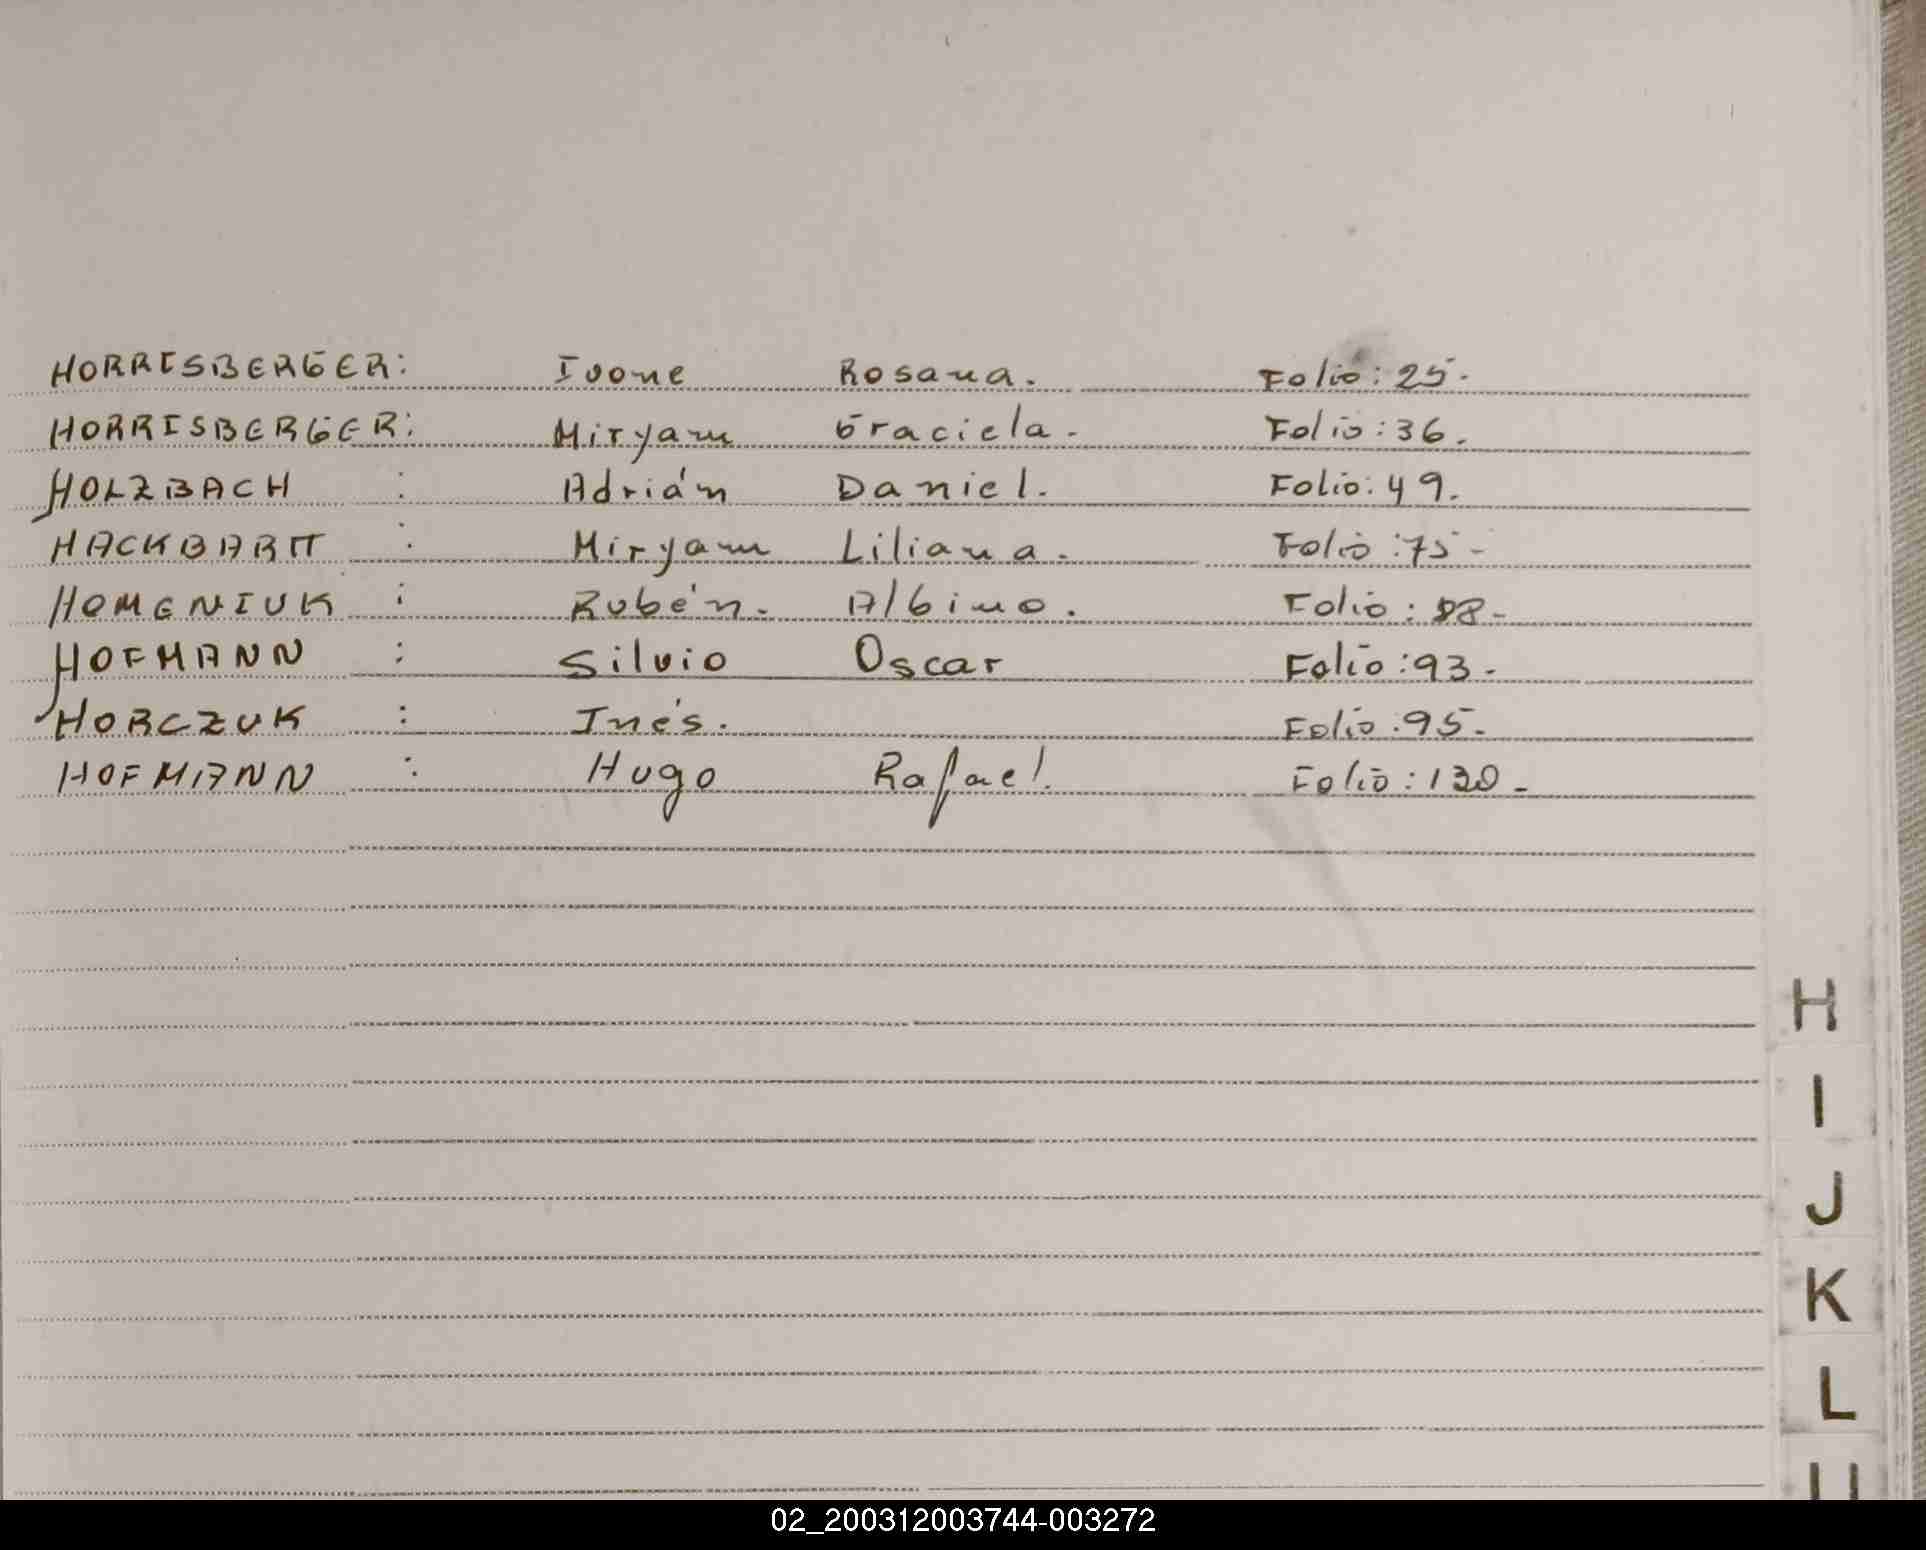 HORRISBERGER: Ivone Rosana. Folio: 25.
HORRISBERGER: Miryam Graciela. Folio: 36.
HOLZBACH : Adrián Daniel. Folio: 49.
HACKBARTT : Miryam Liliana. Folio: 75-
HOMENIUK : Rubén. Albino. Folio: 88-
HOFMANN : Silvio Oscar Folio: 93-
HORCZUK : Inés. Folio: 95-
HOFMANN : Hugo Rafael. Folio: 130-
H
I
J
K
L
02_200312003744-003272